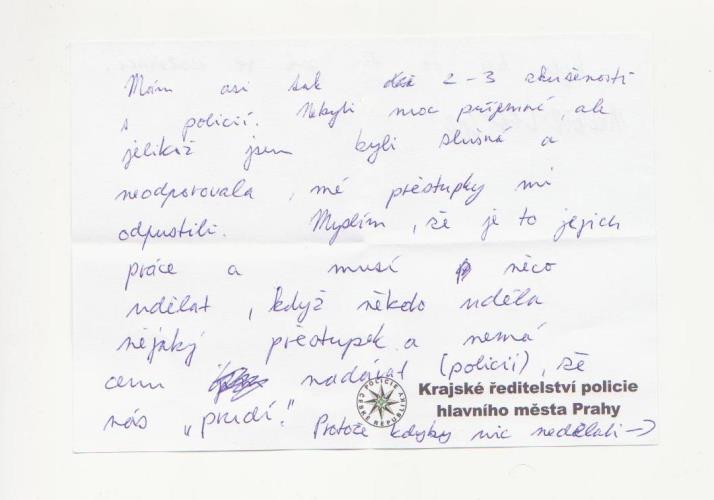 Mám asi tak 2-3 zkušenosti
s policií. Nebyli moc příjemné, ale
jelikož jsem byli slušná a
neodporovala, mé přestupky mi
odpustili. Myslím, že je to jejich
práce a musí něco
udělat, když někdo udělá
nějaký přestupek a nemá
cenu nadávat (policii), že
nás "prudí." Protože kdyby nic nedělali →
POLICIE ČESKÉ REPUBLIKY
Krajské ředitelství policie
hlavního města Prahy